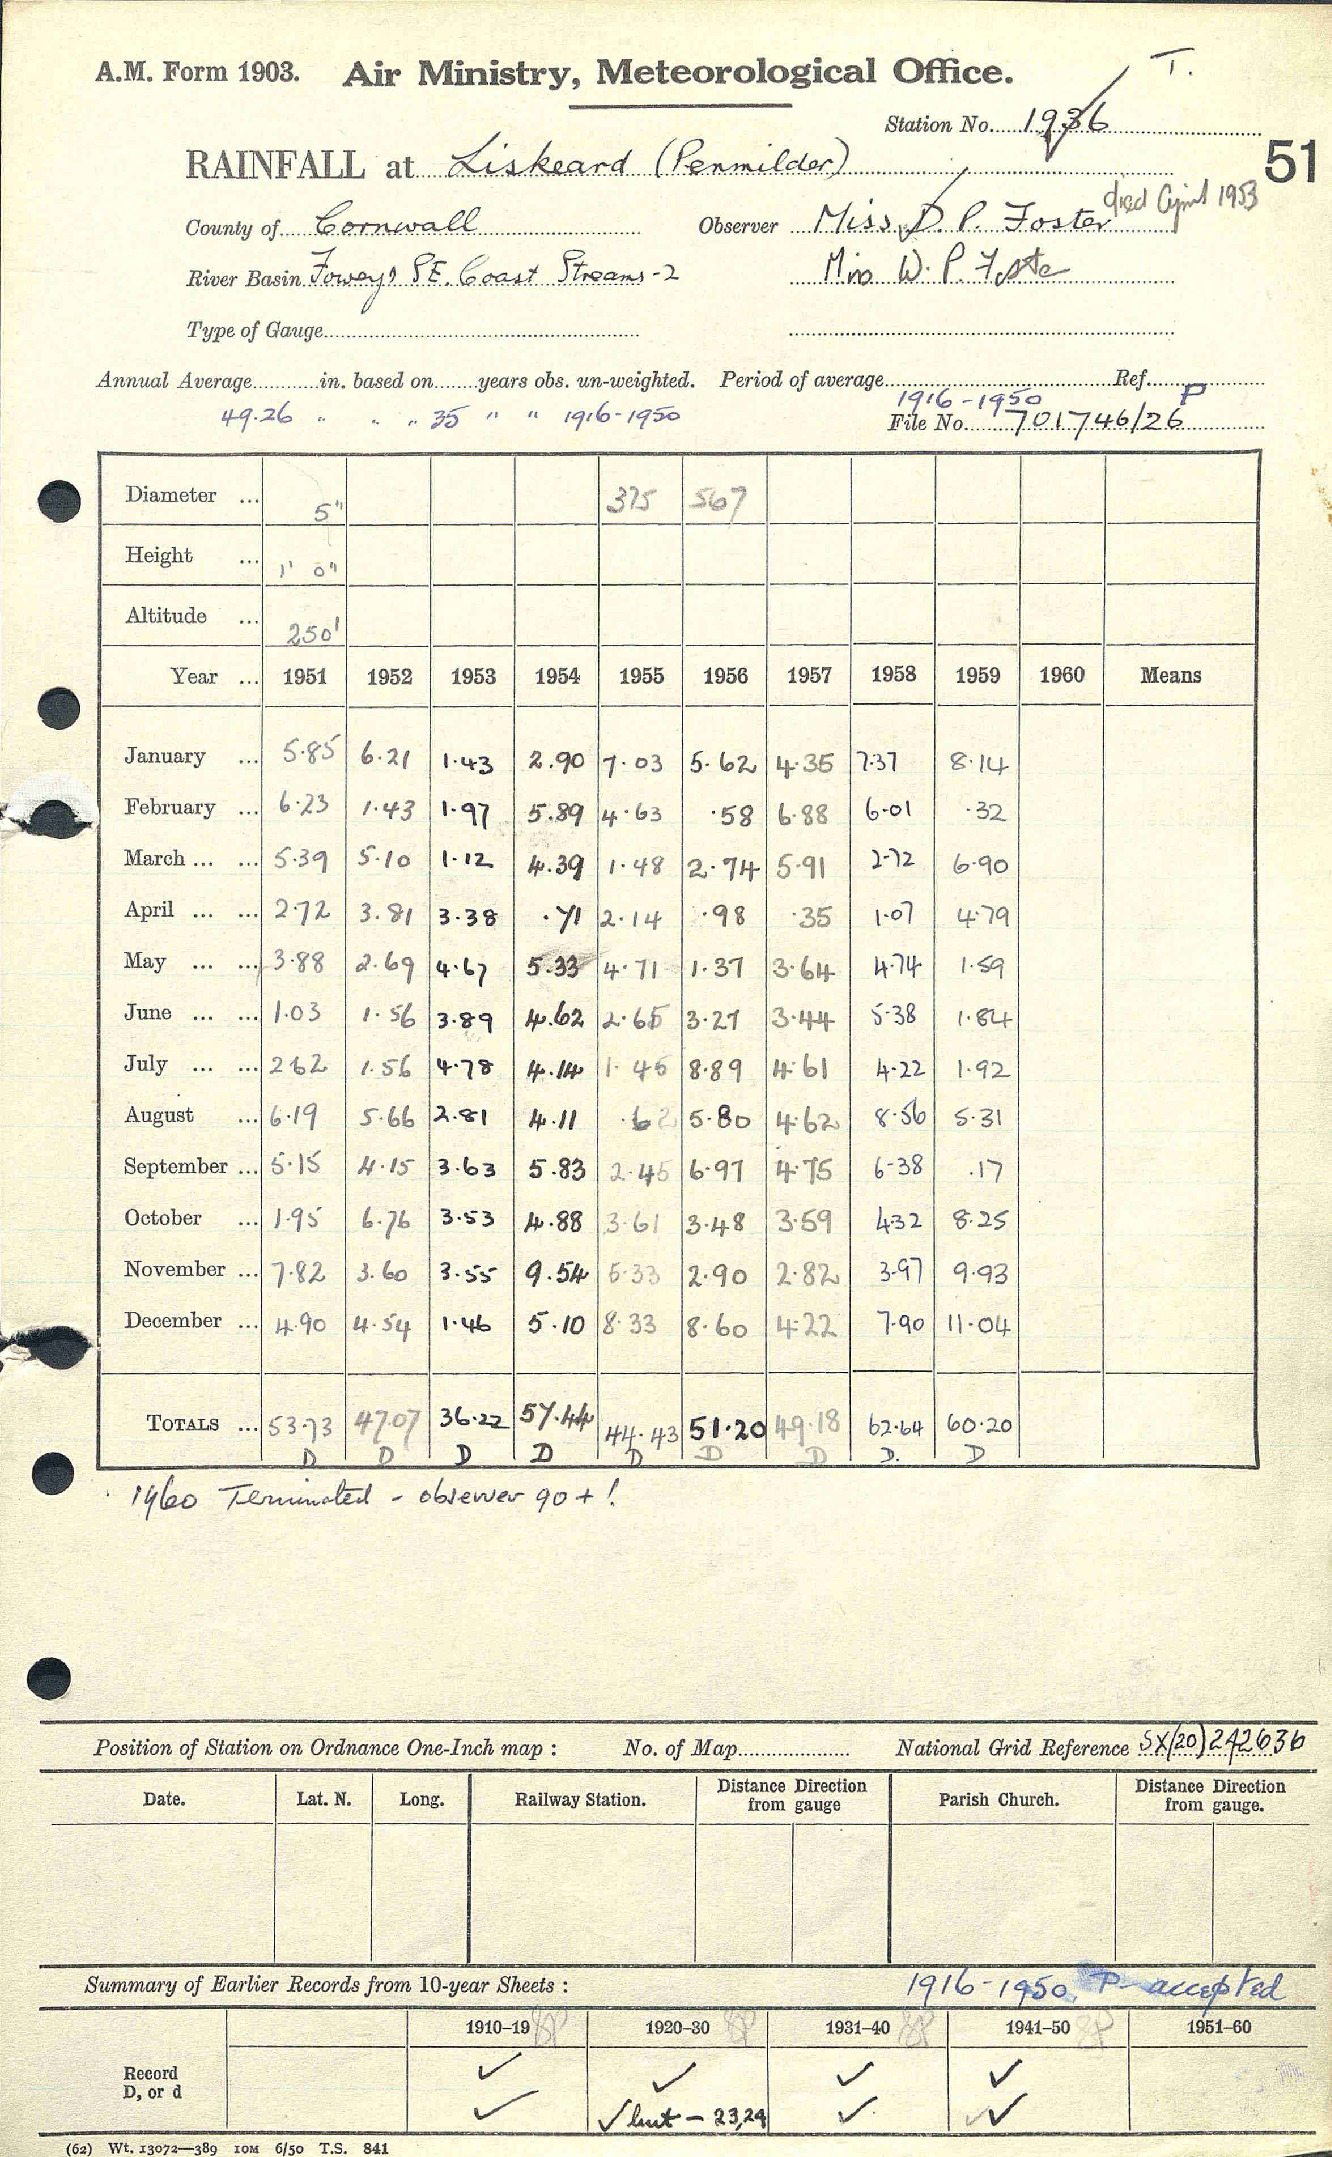 A.M. Form 1903. Air Ministry, Meteorological Office. T.
Station No. 1936
51
RAINFALL at Liskeard (Penmilder)
died April 1953
County of Cornwall Observer Miss D. P. Foster
River Basin Fowey & SE. Coast Streams-2 Miss W. P. Foster
Type of Gauge
Annual Average in. based on years obs. un-weighted. Period of average 1916-1950 Ref. P
49.26 " " " 35 " " 1916-1950 File No. 701746/26
Diameter ... 5" 375 567
Height ... 1' 0"
Altitude ... 250'
Year ... 1951 1952 1953 1954 1955 1956 1957 1958 1959 1960 Means
January ... 5.85 6.21 1.43 2.90 7.03 5.62 4.35 7.37 8.14
February ... 6.23 1.43 1.97 5.89 4.63 .58 6.88 6.01 .32
March ... ... 5.39 5.10 1.12 4.39 1.48 2.74 5.91 2.72 6.90
April ... ... 2.72 3.81 3.38 .71 2.14 .98 .35 1.07 4.79
May ... ... 3.88 2.69 4.67 5.33 4.71 1.37 3.64 4.74 1.59
June ... ... 1.03 1.56 3.89 4.62 2.65 3.27 3.44 5.38 1.84
July ... ... 2.62 1.56 4.78 4.14 1.45 8.89 4.61 4.22 1.92
August ... 6.19 5.66 2.81 4.11 .62 5.80 4.62 8.56 5.31
September ... 5.15 4.15 3.63 5.83 2.45 6.97 4.75 6.38 .17
October ... 1.95 6.76 3.53 4.88 3.61 3.48 3.59 4.32 8.25
November ... 7.82 3.60 3.55 9.54 5.33 2.90 2.82 3.97 9.93
December ... 4.90 4.54 1.46 5.10 8.33 8.60 4.22 7.90 11.04
TOTALS ... 53.73 47.07 36.22 57.44 44.43 51.20 49.18 62.64 60.20
D D D D D D D D. D
1960 Terminated - observer 90+!
Position of Station on Ordnance One-Inch map : No. of Map National Grid Reference SX(20)242636
Date. Lat. N. Long. Railway Station. Distance Direction from gauge Parish Church. Distance Direction from gauge.
Summary of Earlier Records from 10-year Sheets : 1916-1950 P accepted
1910–19 1920–30 1931–40 1941–50 1951–60
Record ✓ ✓ ✓ ✓
D, or d ✓ ✓ but - 23,24 ✓ ✓✓
(62) Wt. 13072—389 10M 6/50 T.S. 841